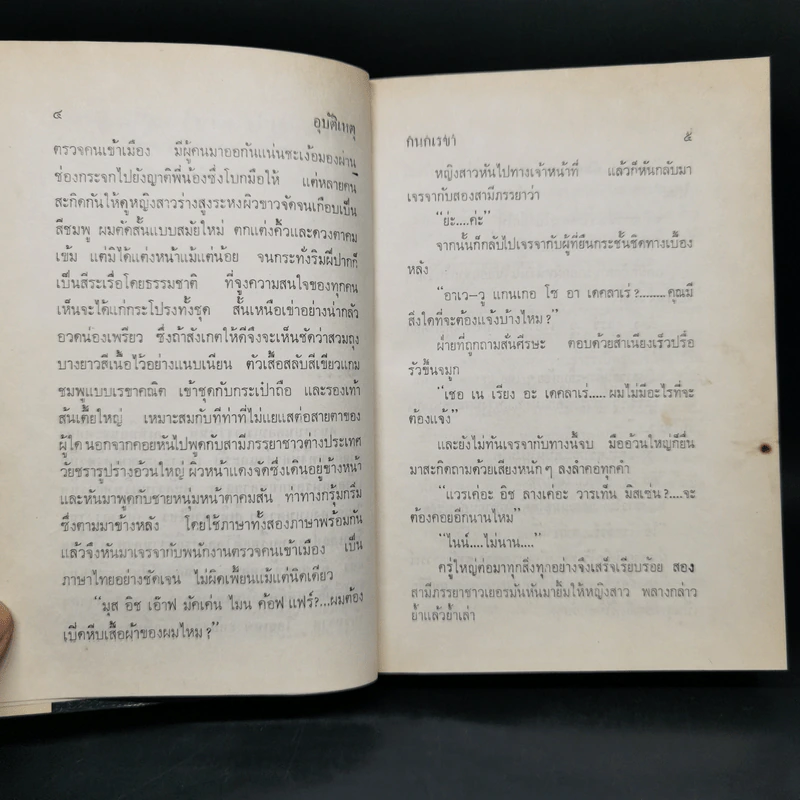 ๔
อุบัติเหตุ
ตรวจคนเข้าเมือง มีผู้คนมาออกันแน่นชะเง้อมองผ่าน
ช่องกระจกไปยังญาติพี่น้องซึ่งโบกมือให้ แต่หลายคน
สะกิดกันให้ดูหญิงสาวร่างสูงระหงผิวขาวจัดจนเกือบเป็น
สีชมพู ผมดัดสั้นแบบสมัยใหม่ ตกแต่งคิ้วและดวงตาคม
เข้ม แต่มิได้แต่งหน้าแม้แต่น้อย จนกระทั่งริมฝีปากก็
เป็นสีระเรื่อโดยธรรมชาติ ที่จูงความสนใจของทุกคน
เห็นจะได้แก่กระโปรงทั้งชุด สั้นเหนือเข่าอย่างน่ากลัว
อวดน่องเพรียว ซึ่งถ้าสังเกตให้ดีจึงจะเห็นชัดว่าสวมถุง
บางยาวสีเนื้อไว้อย่างแนบเนียน ตัวเสื้อสลับสีเขียวแกม
ชมพูแบบเรขาคณิต เข้าชุดกับกระเป๋าถือ และรองเท้า
ส้นเตี้ยใหญ่ เหมาะสมกับทีท่าที่ไม่แยแสต่อสายตาของ
ผู้ใด นอกจากคอยหันไปพูดกับสามีภรรยาชาวต่างประเทศ
วัยชรารูปร่างอ้วนใหญ่ ผิวหน้าแดงจัดซึ่งเดินอยู่ข้างหน้า
และหันมาพูดกับชายหนุ่มหน้าตาคมสัน ท่าทางกรุ้มกริ่ม
ซึ่งตามมาข้างหลัง โดยใช้ภาษาทั้งสองภาษาพร้อมกัน
แล้วจึงหันมาเจรจากับพนักงานตรวจคนเข้าเมือง เป็น
ภาษาไทยอย่างชัดเจน ไม่ผิดเพี้ยนแม้แต่นิดเดียว
“มุส อิช เอ๊าฟ มัคเค่น ไมน ค้อฟ แฟร์?...ผมต้อง
เปิดหีบเสื้อผ้าของผมไหม?”
กนกเรขา
๕
หญิงสาวหันไปทางเจ้าหน้าที่ แล้วก็หันกลับมา
เจรจากับสองสามีภรรยาว่า
“ย่ะ....ค่ะ”
จากนั้นก็กลับไปเจรจากับผู้ที่ยืนกระชั้นชิดทางเบื้อง
หลัง
“อาเว-วู แกนเกอ โช อา เดคลาเร่?........คุณมี
สิ่งใดที่จะต้องแจ้งบ้างไหม?”
ฝ่ายที่ถูกถามสั่นศีรษะ ตอบด้วยสำเนียงเร็วปรื๋อ
รัวขึ้นจมูก
“เชอ เน เรียง อะ เดคลาเร่.....ผมไม่มีอะไรที่จะ
ต้องแจ้ง”
และยังไม่ทันเจรจากับทางนี้จบ มืออ้วนใหญ่ก็ยื่น
มาสะกิดถามด้วยเสียงหนักๆ ลงลำคอทุกคำ
“แวรเค่อะ อิช ลางเค่อะ วารเท็น มิสเซ่น?....จะ
ต้องคอยอีกนานไหม”
“ไนน์....ไม่นาน....”
ครู่ใหญ่ต่อมาทุกสิ่งทุกอย่างจึงเสร็จเรียบร้อย สอง
สามีภรรยาชาวเยอรมันหันมายิ้มให้หญิงสาว พลางกล่าว
ย้ำแล้วย้ำเล่า